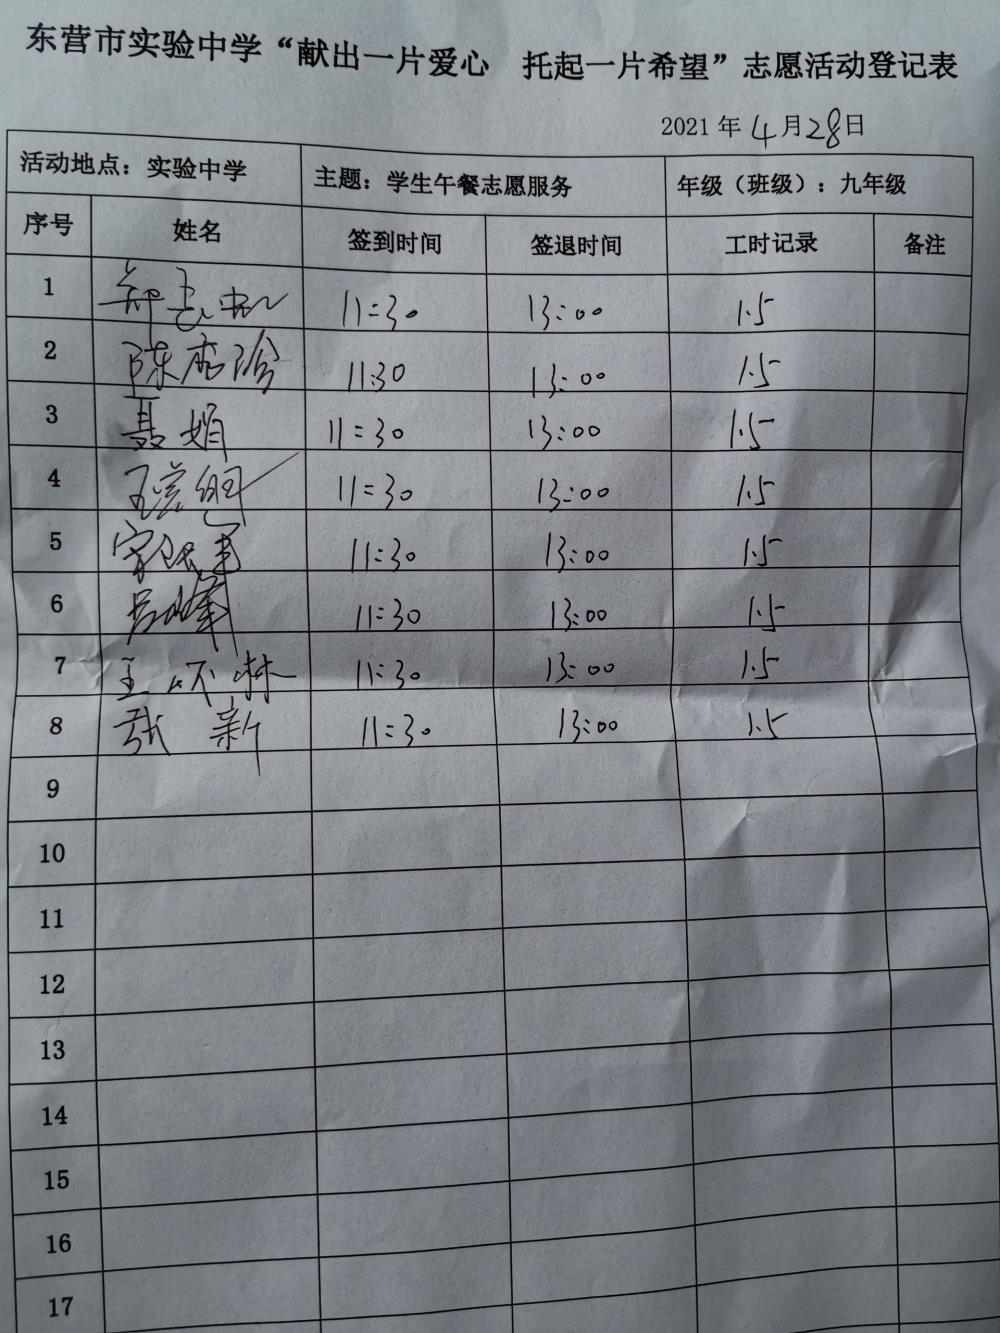 东营市实验中学“献出一片爱心 托起一片希望”志愿活动登记表
2021年4月28日
活动地点：实验中学 主题：学生午餐志愿服务 年级（班级）：九年级
序号 姓名 签到时间 签退时间 工时记录 备注
1 11:30 13:00 1.5
2 陈 11:30 13:00 1.5
3 聂娟 11:30 13:00 1.5
4 11:30 13:00 1.5
5 11:30 13:00 1.5
6 吕峰 11:30 13:00 1.5
7 王 11:30 13:00 1.5
8 张新 11:30 13:00 1.5
9
10
11
12
13
14
15
16
17